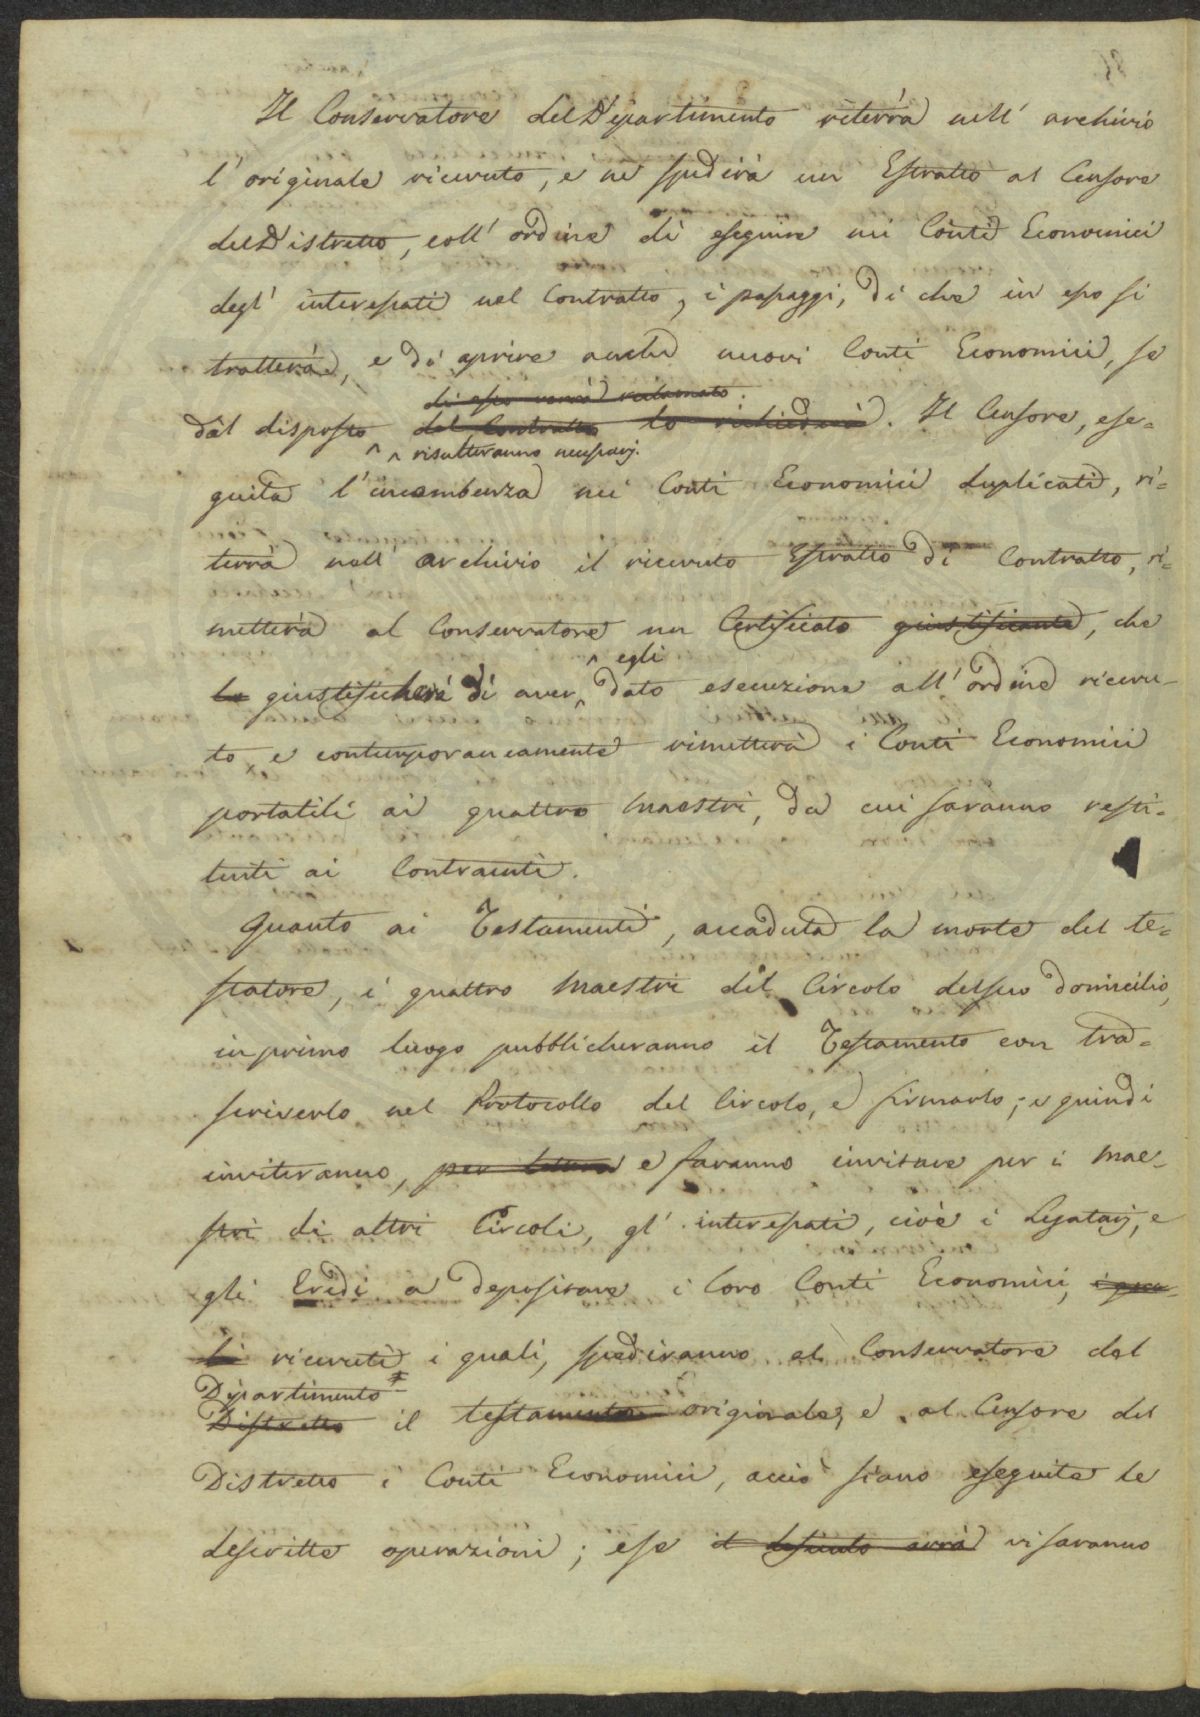 Il Conservatore del Dipartimento riterrà nell' archivio
l' originale ricevuto, e ne spedirà un Estratto al Censore
del Distretto, coll' ordine di eseguire nei Conti Economici
degl' interessati nel Contratto, i passaggi, di che in esso si
tratterà, e di aprire anche nuovi Conti Economici, se
di esso verrà reclamato.
dal disposto del Contratto lo richiederà. Il Censore, ese=
risulteranno necessarj.
guita l' incombenza nei Conti Economici duplicati, ri=
terrà nell' archivio il ricevuto Estratto di Contratto, ri=
metterà al Conservatore un Certificato giustificante, che
egli
lo giustificherà di aver dato esecuzione all' ordine ricevu-
to, e contemporaneamente rimetterà i Conti Economici
portatili ai quattro Maestri, da cui saranno resti-
tuiti ai Contraenti.
Quanto ai Testamenti, accaduta la morte del te=
statore, i quattro Maestri del Circolo del suo domicilio,
in primo luogo pubblicheranno il Testamento con tra=
scriverlo nel Protocollo del Circolo, e firmarlo; e quindi
inviteranno, per lettera e faranno invitare per i Mae-
stri di altri Circoli, gl' interessati, cioè i Legatarj, e
gli Eredi a depositare i loro Conti Economici, i qua-
li ricevuti i quali, spediranno al Conservatore del
Dipartimento
Distretto il testamento originale, e al Censore del
Distretto i Conti Economici, acciò siano eseguite le
descritte operazioni; e se il defunto avrà vi saranno